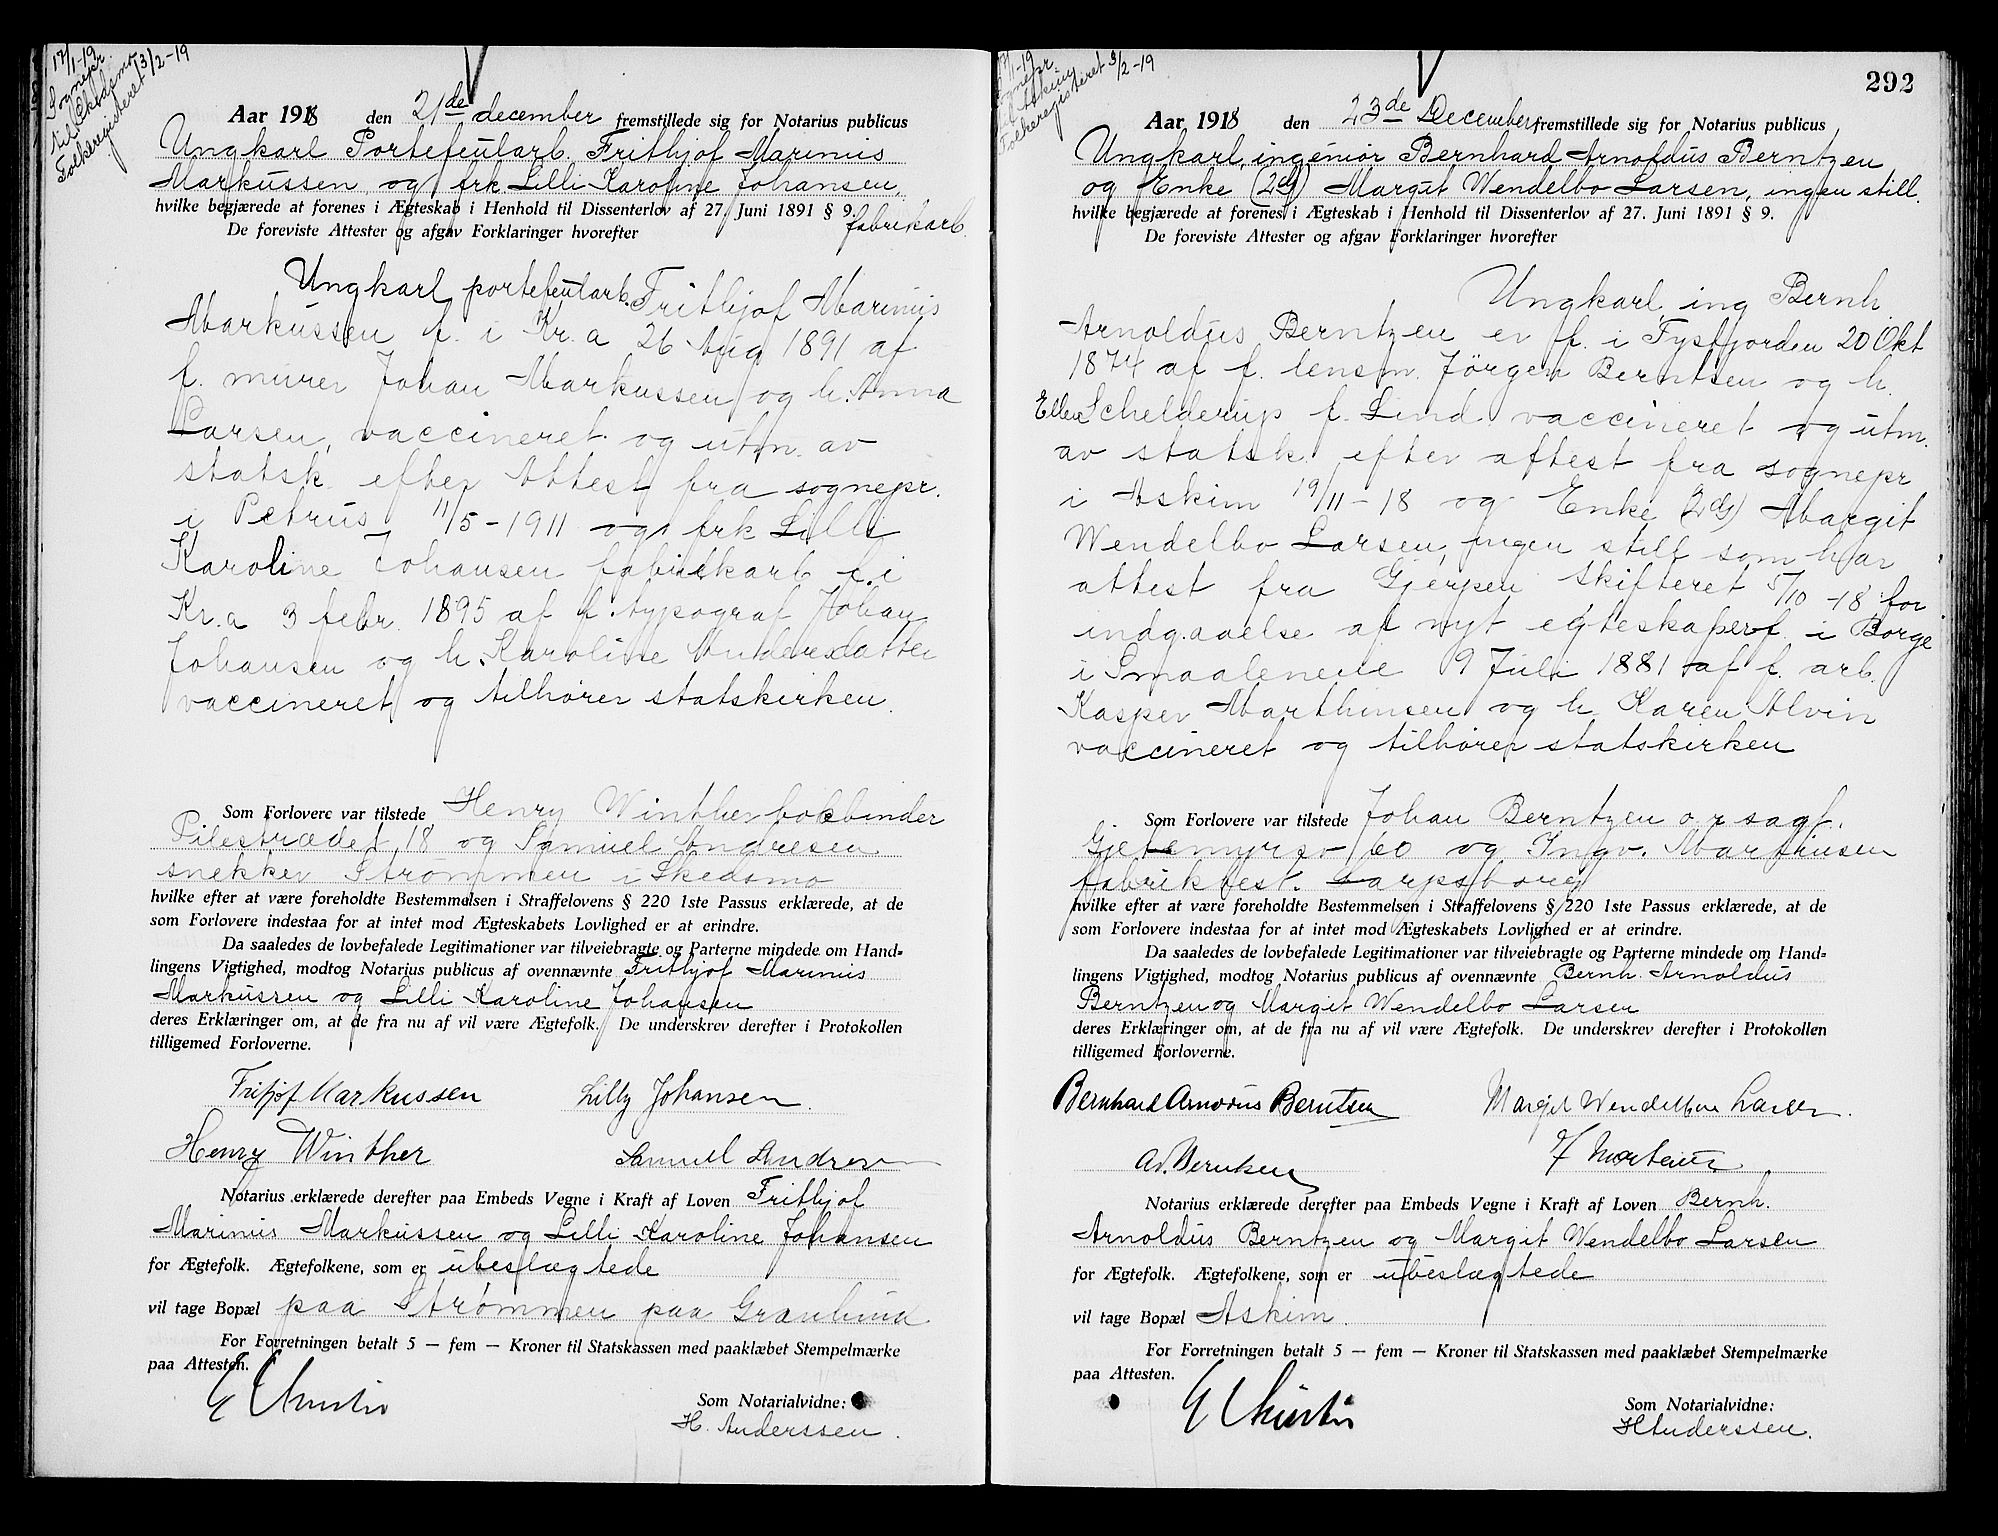 17/1-19
Sognepr.
til Skedsmo
Folkeregisteret 3/2-19
Aar 1918 den 21de december fremstillede sig for Notarius publicus
Ungkarl Portefeularb. Frithjof Marinius
Markussen og frk Lilli Karoline Johansen,
hvilke begjærede at forenes i Ægteskab i Henhold til Dissenterlov af 27. Juni 1891 § 9.
fabrikarb.
De foreviste Attester og afgav Forklaringer hvorefter
Ungkarl portefeularb. Frithjof Marinius
Markussen f. i Kr.a 26 Aug 1891 af
f. murer Johan Markussen og h. Anna
Larsen, vaccineret og utm. av
statsk. efter Attest fra sognepr.
i Petrus 11/5-1911 og frk Lilli
Karoline Johansen fabrikarb f. i
Kr.a 3 febr. 1895 af f. typograf Johan
Johansen og h. Karoline Andersdatter
vaccineret og tilhører statskirken.
Som Forlovere var tilstede Henry Winther bokbinder
Pilestrædet 18 og Samuel Andresen
snekker Strømmen i Skedsmo
hvilke efter at være foreholdte Bestemmelsen i Straffelovens § 220 1ste Passus erklærede, at de
som Forlovere indestaa for at intet mod Ægteskabets Lovlighed er at erindre.
Da saaledes de lovbefalede Legitimationer var tilveiebragte og Parterne mindede om Hand-
lingens Vigtighed, modtog Notarius publicus af ovennævnte Frithjof Marinius
Markussen og Lilli Karoline Johansen
deres Erklæringer om, at de fra nu af vil være Ægtefolk. De underskrev derefter i Protokollen
tilligemed Forloverne.
Fritjof Markussen Lilly Johansen.
Henry Winther Samuel Andresen
Notarius erklærede derefter paa Embeds Vegne i Kraft af Loven Frithjof
Marinius Markussen og Lilli Karoline Johansen
for Ægtefolk. Ægtefolkene, som er ubeslægtede
vil tage Bopæl paa Strømmen paa Granlund
For Forretningen betalt 5 — fem — Kroner til Statskassen med paaklæbet Stempelmærke
paa Attesten.
Som Notarialvidne:
H. Anderssen.
292
17/1-19
Sognepr.
til Askim
Folkeregisteret 3/2-19
Aar 1918 den 23de December fremstillede sig for Notarius publicus
Ungkarl, ingeniør Bernhard Arnoldus Berntzen
og Enke (2dg) Margit Wendelbo Larsen, ingen still.
hvilke begjærede at forenes i Ægteskab i Henhold til Dissenterlov af 27. Juni 1891 § 9.
De foreviste Attester og afgav Forklaringer hvorefter
Ungkarl, ing Bernh.
Arnoldus Berntzen er f. i Tysfjorden 20 Okt
1874 af f. lensm. Jörgen Berntsen og h.
Ellen Schelderup f. Lind vaccineret og utm.
av statsk. efter attest fra sognepr
i Askim 19/11-18 og Enke (2dg) Margit
Wendelbo Larsen, ingen still som har
attest fra Gjerpen skifteret 5/10-18 for
indgaaelse af nyt egteskaper f. i Borge
i Smaalenene 9 Juli 1881 af f. arb.
Kasper Marthinsen og h. Karen Alvin
vaccineret og tilhører statskirken
Som Forlovere var tilstede Johan Berntzen o.r.sagf.
Gjetemyrsv 60 og Ingv. Marthinsen
fabrikbest. Sarpsborg
hvilke efter at være foreholdte Bestemmelsen i Straffelovens § 220 1ste Passus erklærede, at de
som Forlovere indestaa for at intet mod Ægteskabets Lovlighed er at erindre.
Da saaledes de lovbefalede Legitimationer var tilveiebragte og Parterne mindede om Hand-
lingens Vigtighed, modtog Notarius publicus af ovennævnte Bernh. Arnoldus
Berntzen og Margit Wendelbo Larsen
deres Erklæringer om, at de fra nu af vil være Ægtefolk. De underskrev derefter i Protokollen
tilligemed Forloverne.
Bernhard Arnoldus Berntsen Margit Wendelboe Larsen.
Notarius erklærede derefter paa Embeds Vegne i Kraft af Loven Bernh.
Arnoldus Berntzen og Margit Wendelbo Larsen
for Ægtefolk. Ægtefolkene, som er ubeslægtede
vil tage Bopæl Askim.
For Forretningen betalt 5 — fem — Kroner til Statskassen med paaklæbet Stempelmærke
paa Attesten.
Som Notarialvidne:
H Anderssen.